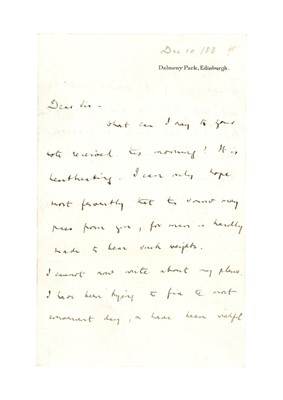 Dec 10 / 88
Dalmeny Park, Edinburgh.
Dear Sir -
What can I say to your
note received this morning? It is
heartrending. I can only hope
most fervently that the sorrow may
pass from you, for man is hardly
made to bear such weights.
I cannot now write about my plans.
I have been trying to fix the most
convenient day, & have been